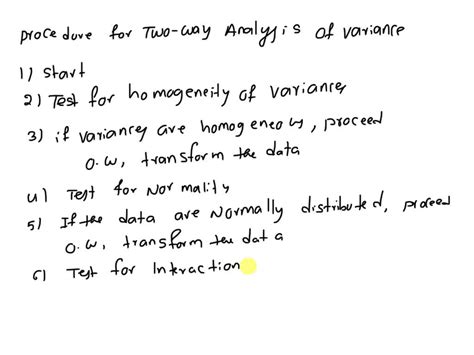 procedure for Two-way Analysis of variance
1) start
2) Test for homogeneity of variances
3) if variances are homogeneous, proceed
o.w, transform the data
4) Test for Normality
5) If the data are Normally distributed, proceed
o.w, transform the data
6) Test for Interaction